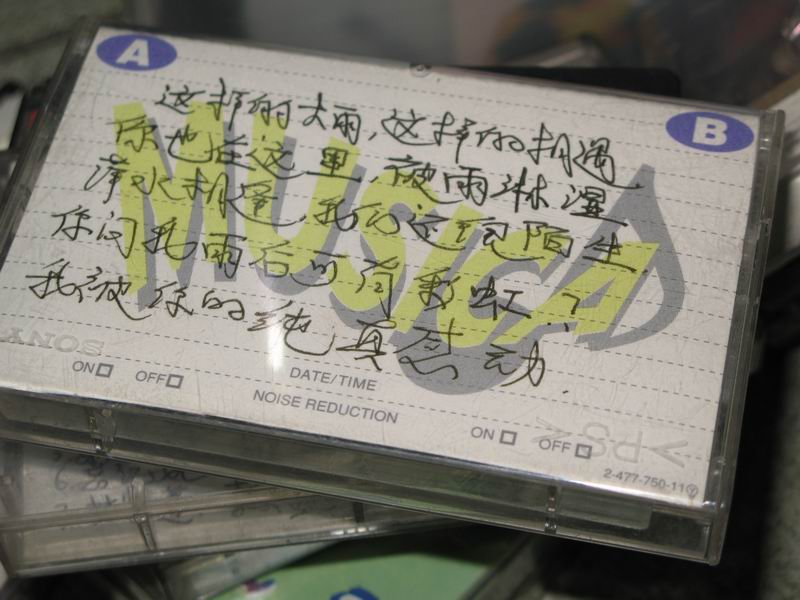 A
B
这样的大雨，这样的相遇，
你也在这里 被雨淋湿
萍水相逢，我们这统陌生
你问我雨后可有彩虹？
我被你的纯真感动．
MUSICA
SONY
ON OFF
DATE/TIME
NOISE REDUCTION
ON OFF
>PS<
2-477-750-11